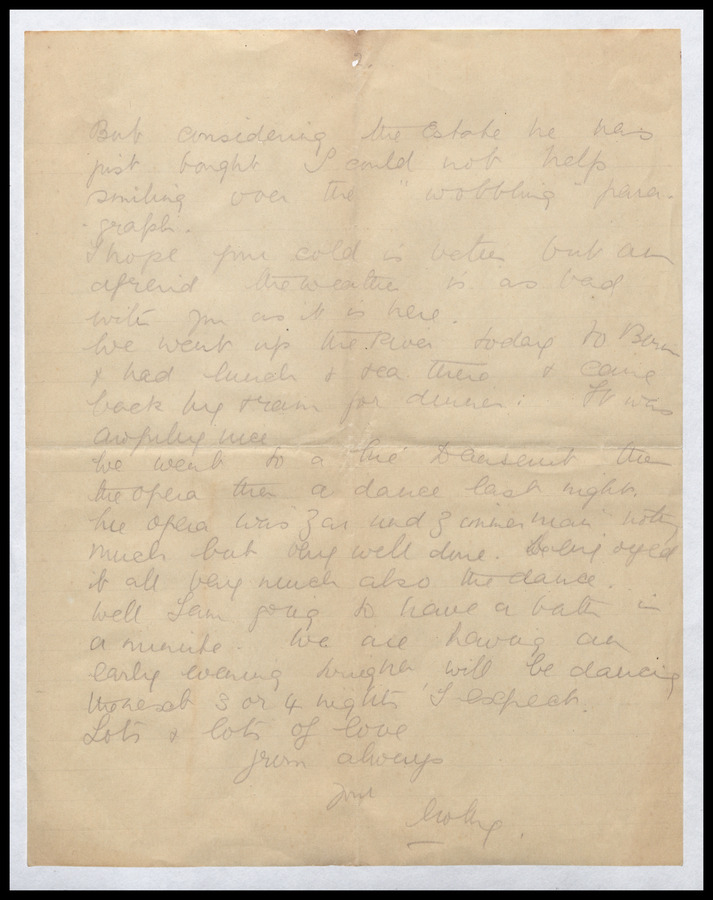 2.
But considering the Estate he has
just bought I could not help
smiling over the "wobbling" para-
-graph.
I hope your cold is better but am
afreind the weather is as bad
with you as it is here.
We went up the River today to Bonn
& had lunch & tea there & came
back by tram for dinner. It was
awfully nice
We went to a Thé Dansant then
the opera then a dance last night.
The opera was Zar und Zimmerman
much but very well done.
it all very much also the dance.
Well I am going to have a bath in
a minute. We are having an
early evening tonight will be dancing
the next 3 or 4 nights I expect.
Lots & lots of love
from always
your
Molly.